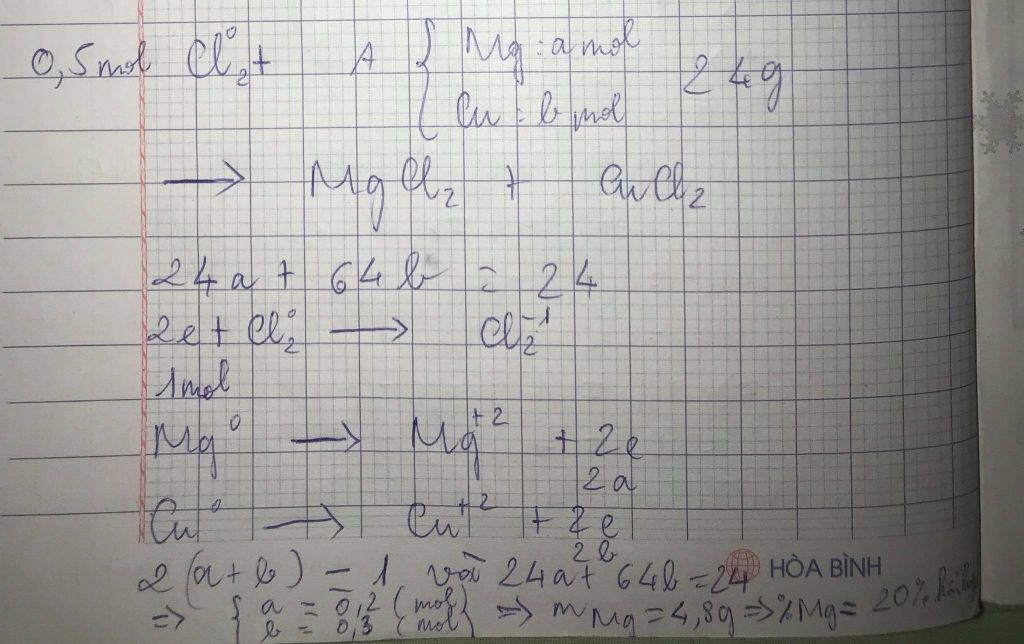 0,5 mol Cl₂⁰ + A { Mg : a mol 24g
Cu : b mol
→ MgCl₂ + CuCl₂
24a + 64b = 24
2e + Cl₂⁰ → Cl₂⁻¹
1 mol
Mg⁰ → Mg⁺² + 2e
2a
Cu⁰ → Cu⁺² + 2e
2b
2(a+b) = 1 và 24a + 64b = 24
HÒA BÌNH
=> { a = 0,2 (mol) => m Mg = 4,8g => %Mg = 20%
b = 0,3 (mol)